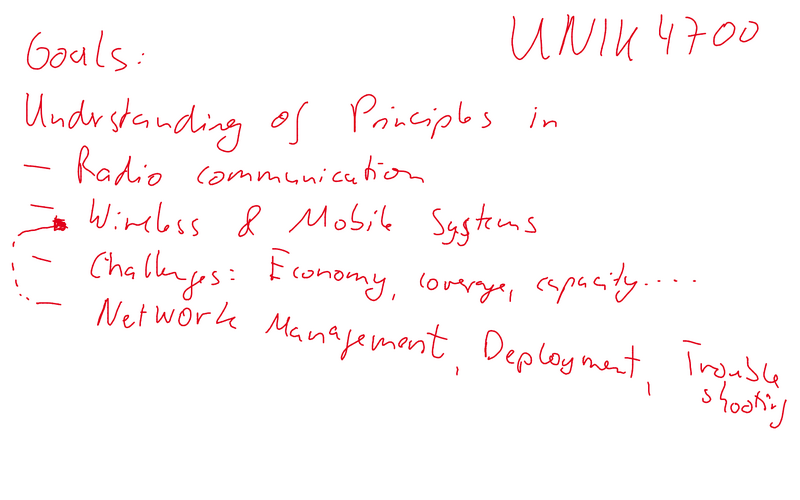 UNIK 4700
Goals:
Understanding of Principles in
- Radio communication
- Wireless & Mobile Systems
- Challenges: Economy, coverage, capacity....
- Network Management, Deployment, Trouble
shooting